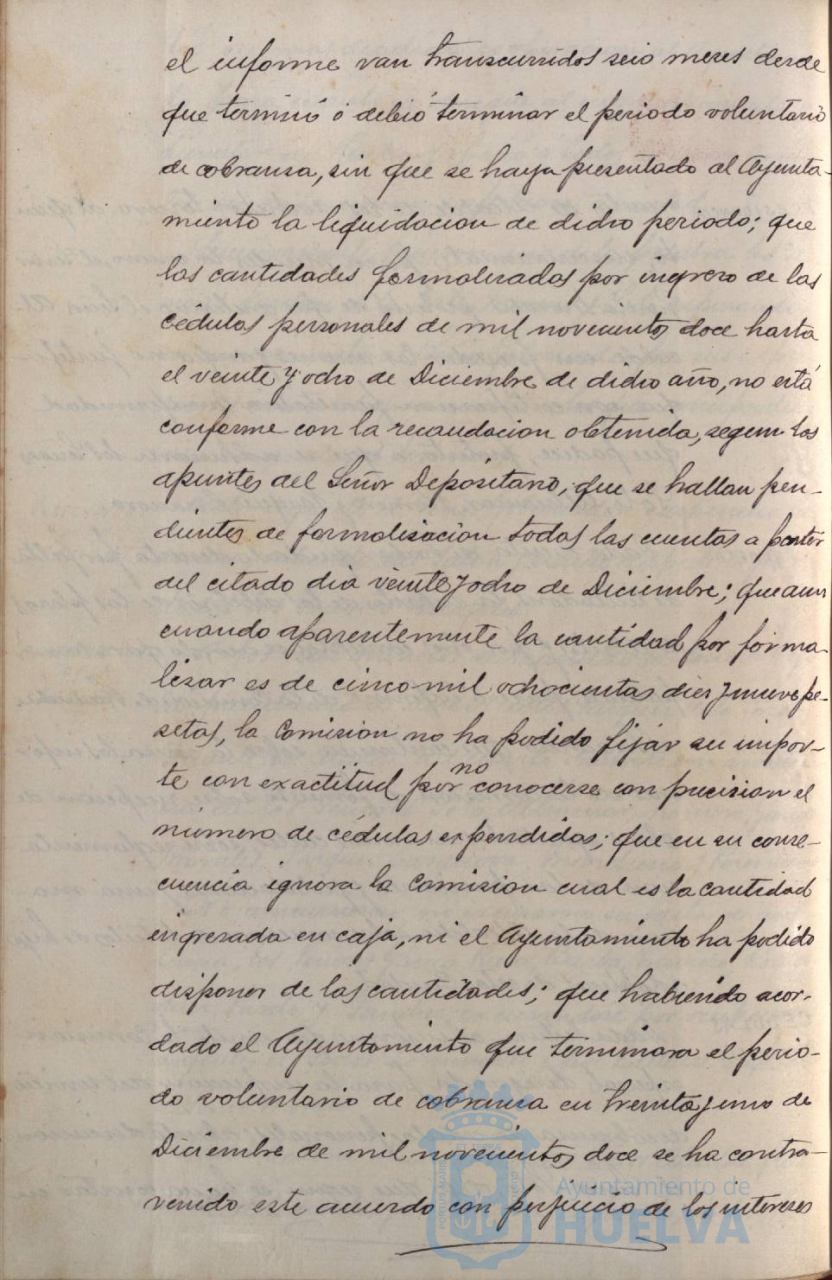 el informe van transcurridos seis meses desde
que terminó ó debió terminar el periodo voluntario
de cobransa, sin que se haya presentado al Ayunta-
miento la liquidacion de dicho periodo; que
las cantidades formalizadas por ingreso de las
cédulas personales de mil novecientos doce hasta
el veinte y ocho de Diciembre de dicho año, no está
conforme con la recaudacion obtenida, segun los
apuntes del Señor Depositario; que se hallan pen-
dientes de formalizacion todas las cuentas a partir
del citado dia veinte y ocho de Diciembre; que aun
cuando aparentemente la cantidad por forma-
lizar es de cinco mil ochocientas diez y nueve pe-
setas, la Comision no ha podido fijar su impor-
te con exactitud por no conocerse con precision el
número de cédulas expendidas; que en su conse-
cuencia ignora la Comision cual es la cantidad
ingresada en caja, ni el Ayuntamiento ha podido
disponer de las cantidades; que habiendo acor-
dado el Ayuntamiento que terminara el perio-
do voluntario de cobransa en treinta y uno de
Diciembre de mil novecientos doce se ha contra-
venido este acuerdo con perjuicio de los intereses
Ayuntamiento de
HUELVA